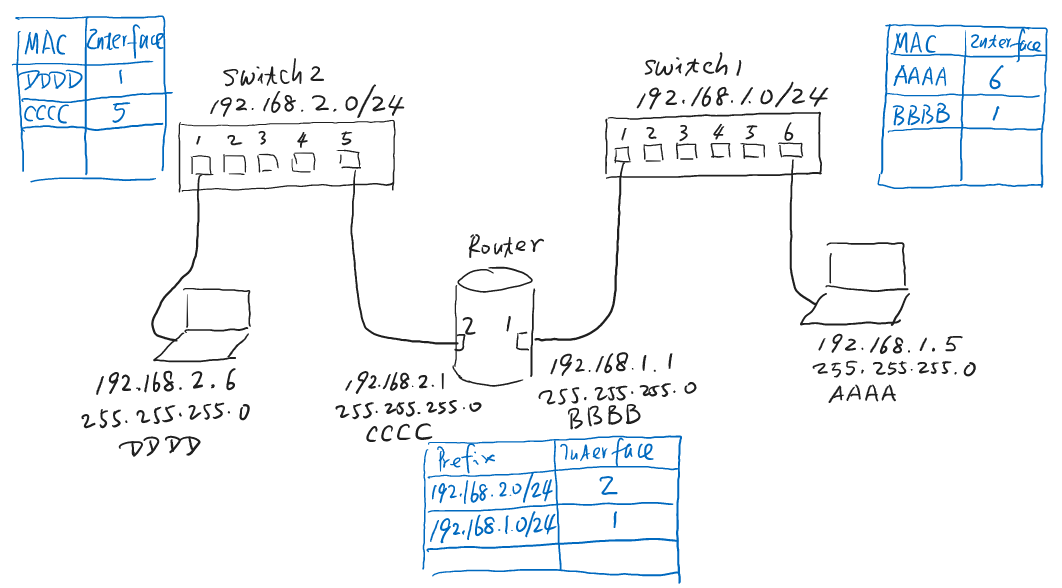 MAC Interface
DDDD 1
CCCC 5
switch 2
192.168.2.0/24
1 2 3 4 5
switch 1
192.168.1.0/24
1 2 3 4 5 6
MAC Interface
AAAA 6
BBBB 1
Router
2 1
192.168.2.6
255.255.255.0
DDDD
192.168.2.1
255.255.255.0
CCCC
192.168.1.1
255.255.255.0
BBBB
192.168.1.5
255.255.255.0
AAAA
Prefix Interface
192.168.2.0/24 2
192.168.1.0/24 1